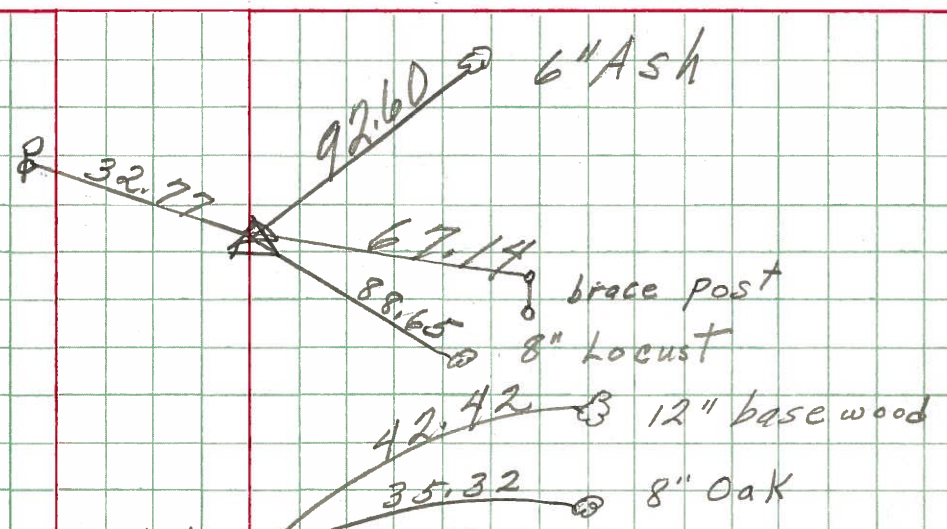 6" Ash
92.60
32.77
67.14
brace post
88.65
8" Locust
42.42
12" basewood
35.32
8" Oak